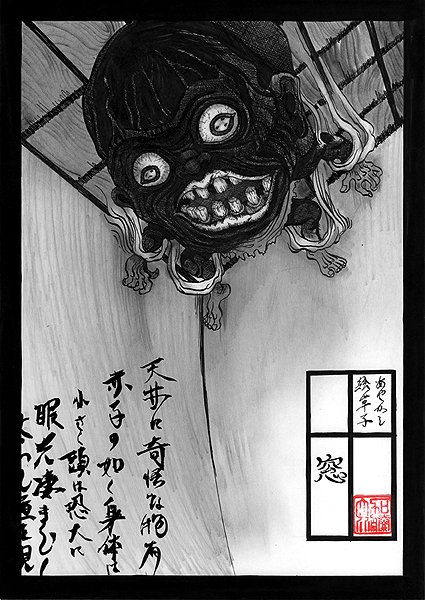 あやかし
絵草子
窓
天井に奇怪な物有
赤子の如く身体は
小さく頭は大に
眼光凄まじく